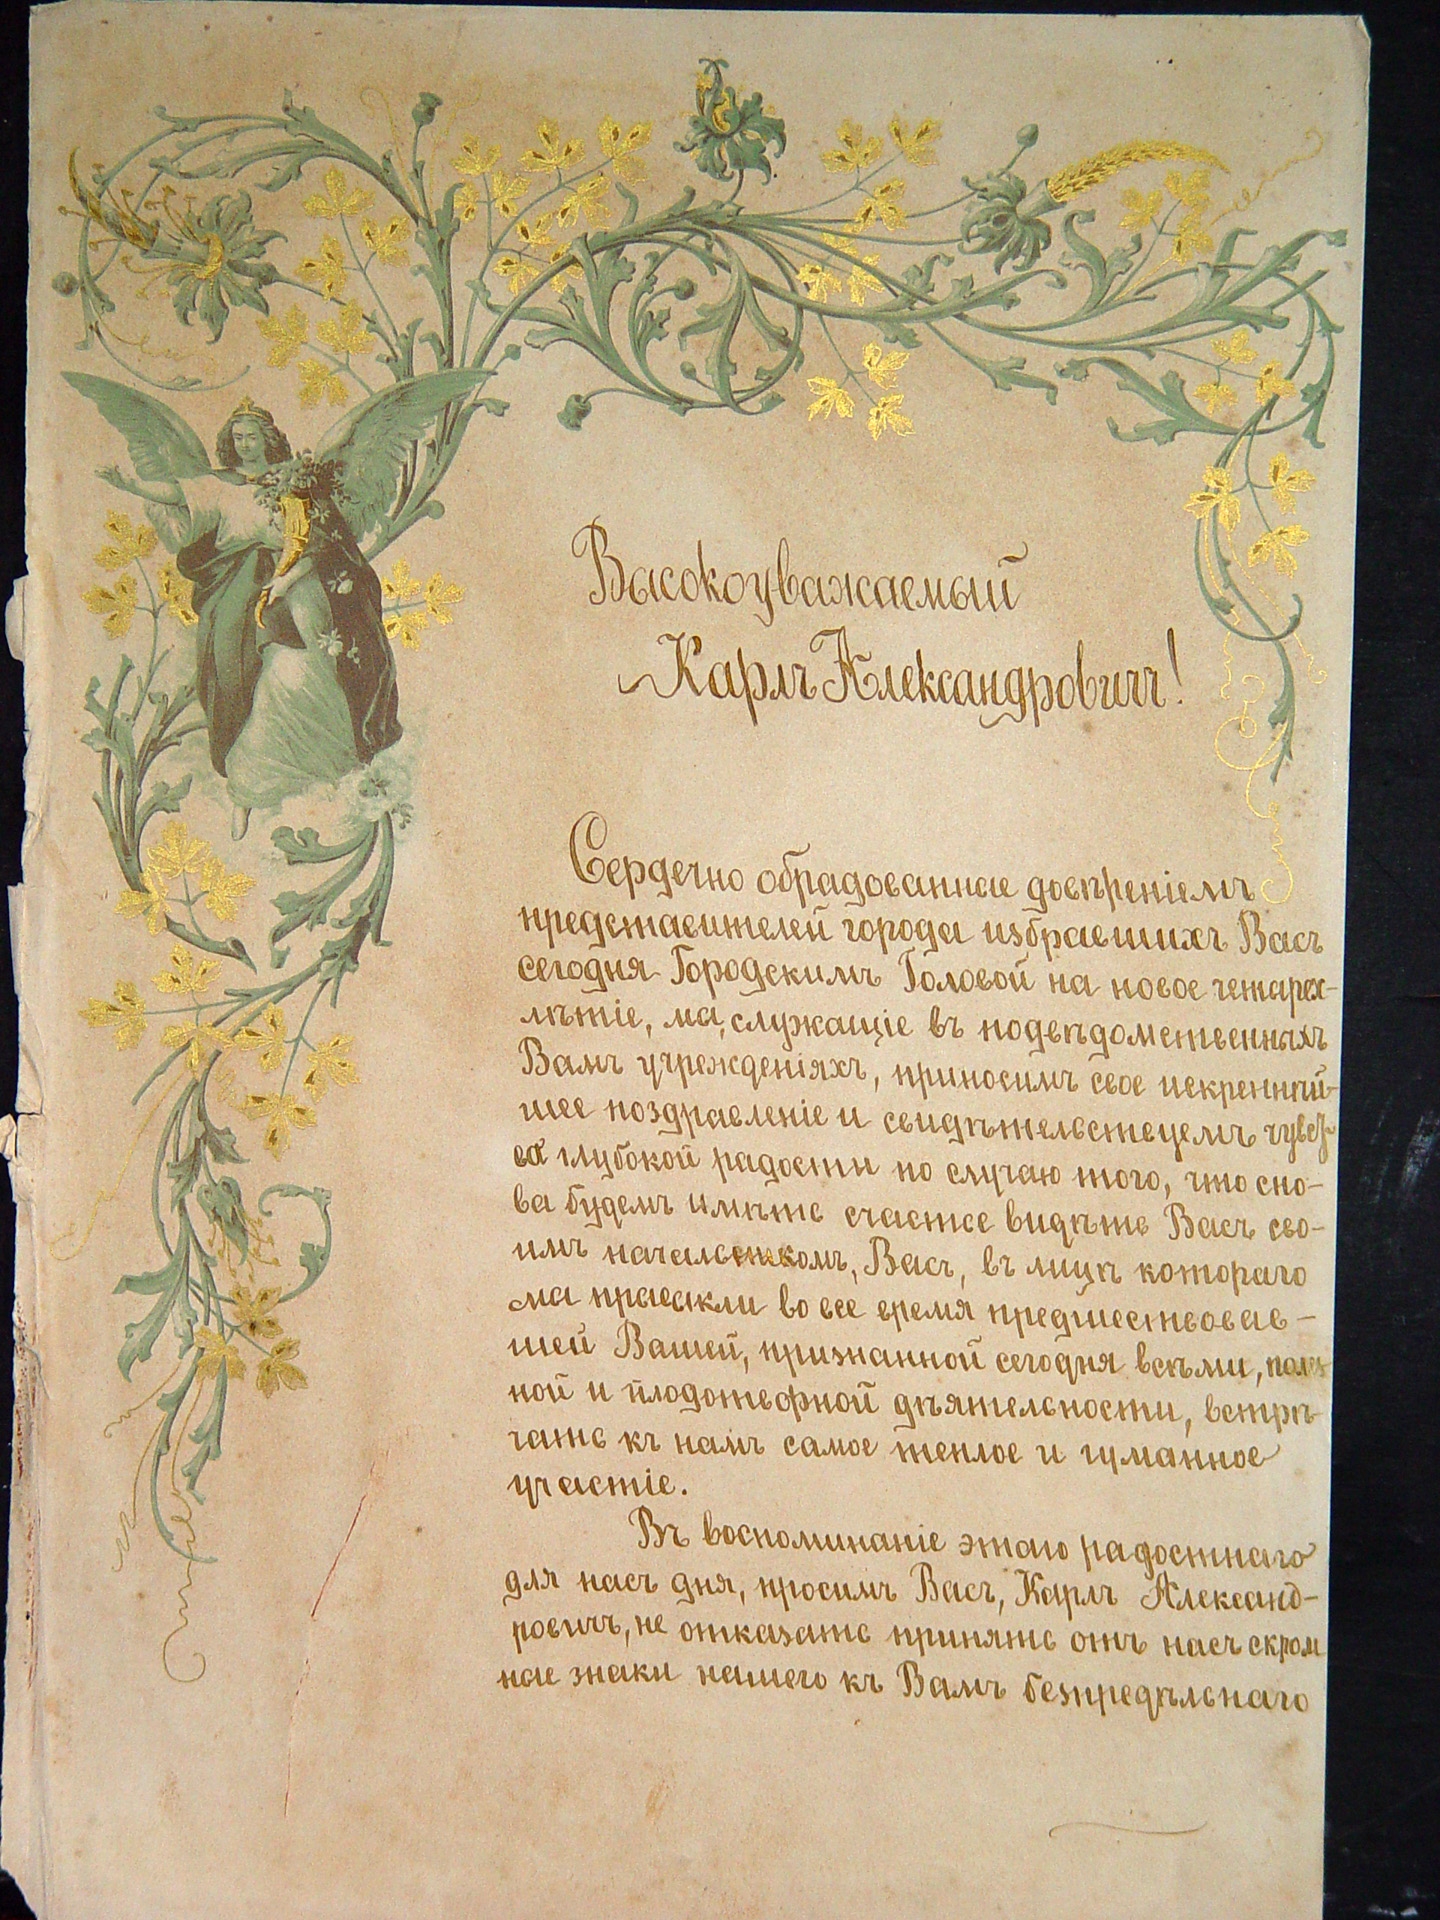 Высокоуважаемый
Карлъ Александровичъ!
Сердечно обрадованные довѣріемъ
представителей города избравшихъ Васъ
сегодня Городскимъ Головой на новое четырех-
лѣтіе, мы, служащіе въ подвѣдомственныхъ
Вамъ учрежденіяхъ, приносимъ свое искреннѣй-
шее поздравленіе и свидѣтельствуемъ чувст-
ва глубокой радости по случаю того, что сно-
ва будемъ имѣть счастье видѣть Васъ сво-
имъ начальникомъ, Васъ, въ лицѣ котораго
мы привыкли во все время предшествовав-
шей Вашей, признанной сегодня всѣми, полез
ной и плодотворной дѣятельности, встрѣ-
чать къ намъ самое теплое и гуманное
участіе.
Въ воспоминаніе этаго радостнаго
для насъ дня, просимъ Васъ, Карлъ Александ-
ровичъ, не отказать принять отъ насъ скром
ные знаки нашего къ Вамъ безпредѣльнаго